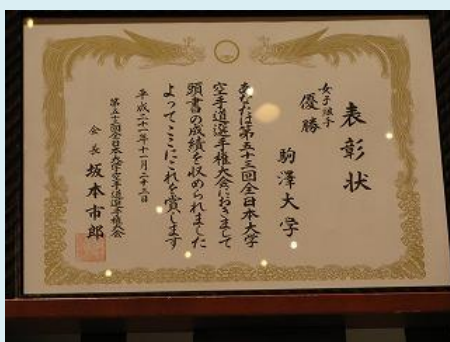 表彰状
女子組手
優勝
駒澤大学
あなたは第五十三回全日本大学
空手道選手権大会におきまして
頭書の成績を収められました
よってここにこれを賞します
平成二十一年十一月二十三日
第五十三回全日本大学空手道選手権大会
会長 坂本市郎